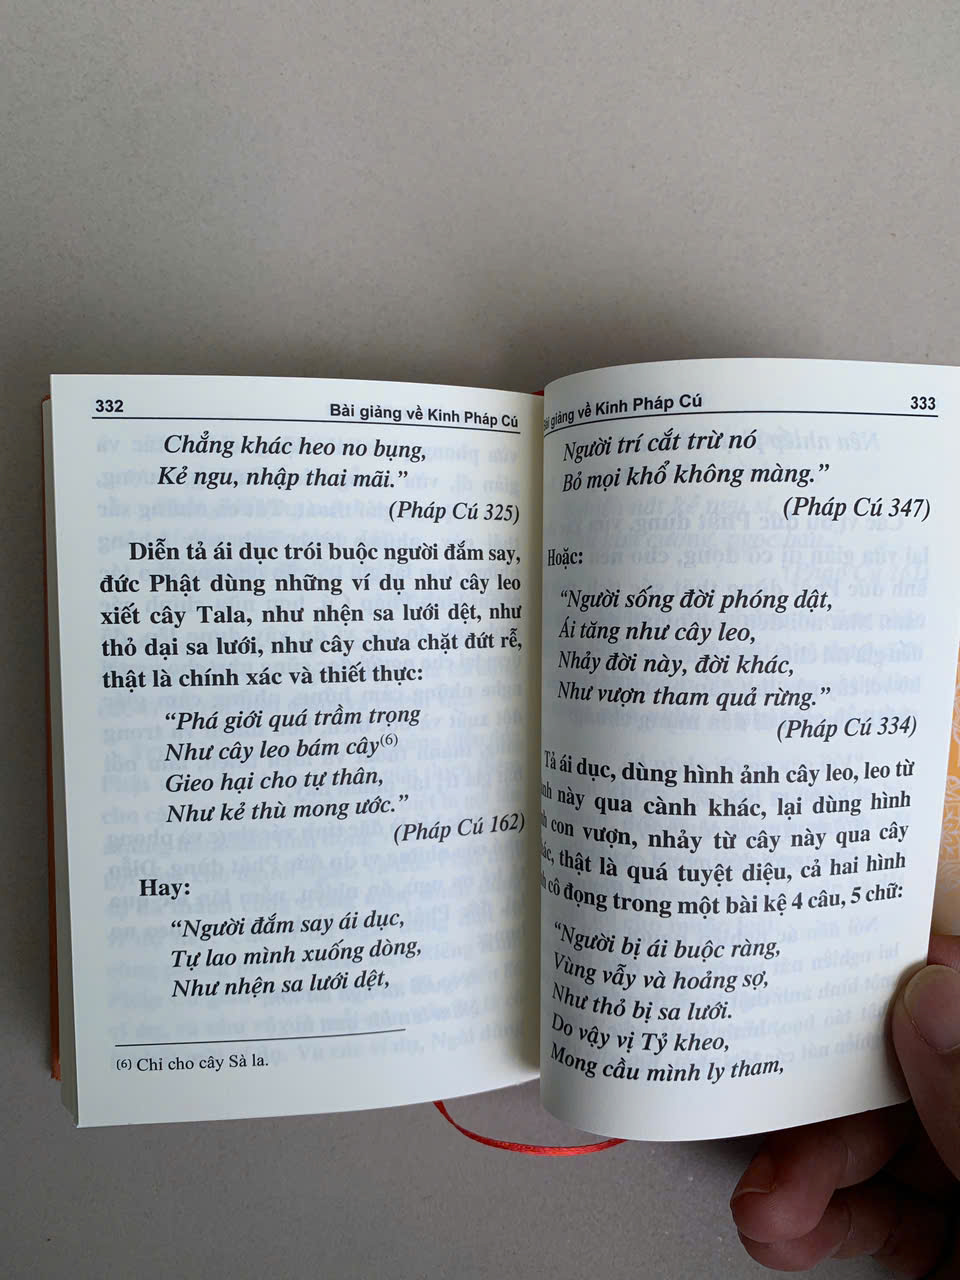 332
Bài giảng về Kinh Pháp Cú
Chẳng khác heo no bụng,
Kẻ ngu, nhập thai mãi.”
(Pháp Cú 325)
Diễn tả ái dục trói buộc người đắm say,
đức Phật dùng những ví dụ như cây leo
xiết cây Tala, như nhện sa lưới dệt, như
thỏ dại sa lưới, như cây chưa chặt đứt rễ,
thật là chính xác và thiết thực:
“Phá giới quá trầm trọng
Như cây leo bám cây(6)
Gieo hại cho tự thân,
Như kẻ thù mong ước.”
(Pháp Cú 162)
Hay:
“Người đắm say ái dục,
Tự lao mình xuống dòng,
Như nhện sa lưới dệt,
(6) Chỉ cho cây Sà la.
giảng về Kinh Pháp Cú
333
Người trí cắt trừ nó
Bỏ mọi khổ không màng.”
(Pháp Cú 347)
Hoặc:
“Người sống đời phóng dật,
Ái tăng như cây leo,
Nhảy đời này, đời khác,
Như vượn tham quả rừng.”
(Pháp Cú 334)
Tả ái dục, dùng hình ảnh cây leo, leo từ
này qua cành khác, lại dùng hình
con vượn, nhảy từ cây này qua cây
thật là quá tuyệt diệu, cả hai hình
cô đọng trong một bài kệ 4 câu, 5 chữ:
“Người bị ái buộc ràng,
Vùng vẫy và hoảng sợ,
Như thỏ bị sa lưới.
Do vậy vị Tỷ kheo,
Mong cầu mình ly tham,